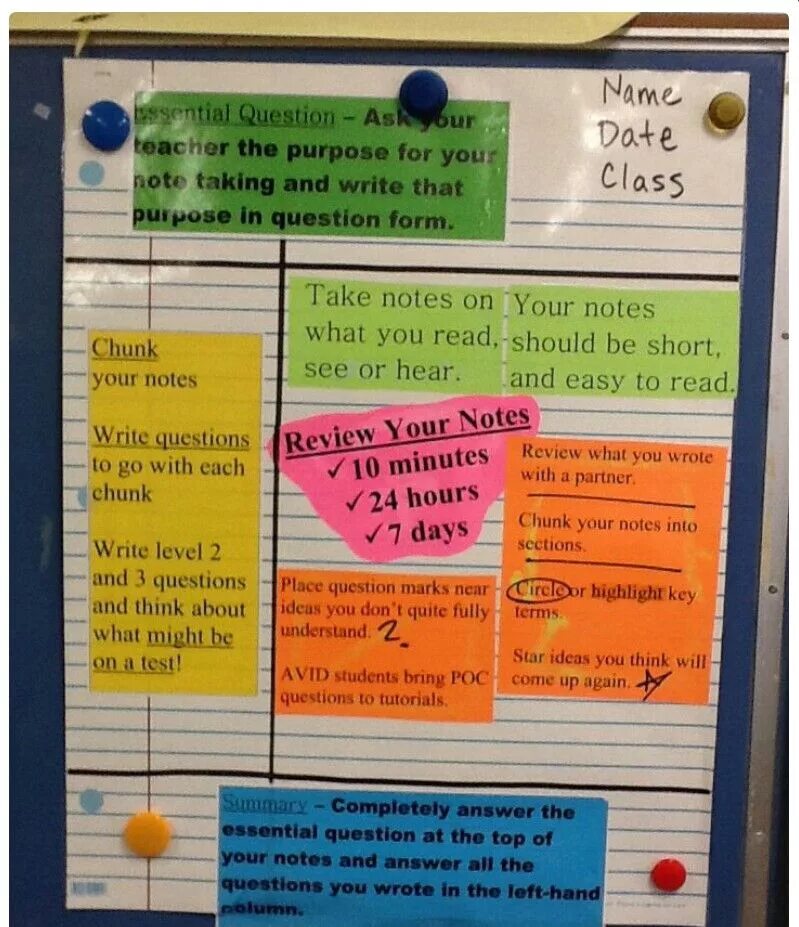 Essential Question – Ask your
teacher the purpose for your
note taking and write that
purpose in question form.
Name
Date
Class
Take notes on
what you read,
see or hear.
Your notes
should be short,
and easy to read.
Chunk
your notes
Write questions
to go with each
chunk
Write level 2
and 3 questions
and think about
what might be
on a test!
Review Your Notes
✓ 10 minutes
✓ 24 hours
✓ 7 days
Place question marks near
ideas you don't quite fully
understand. ?
AVID students bring POC
questions to tutorials.
Review what you wrote
with a partner.
Chunk your notes into
sections.
Circle or highlight key
terms.
Star ideas you think will
come up again.
Summary – Completely answer the
essential question at the top of
your notes and answer all the
questions you wrote in the left-hand
column.